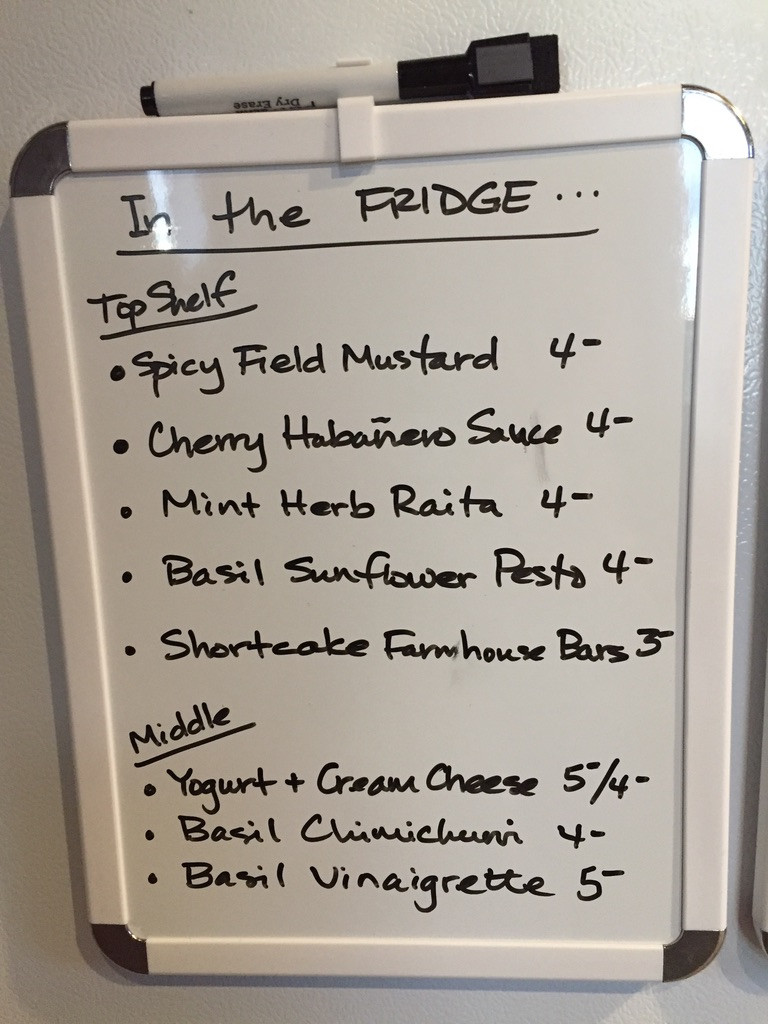 Dry Erase
In the FRIDGE ...
Top Shelf
• Spicy Field Mustard 4-
• Cherry Habañero Sauce 4-
• Mint Herb Raita 4-
• Basil Sunflower Pesto 4-
• Shortcake Farmhouse Bars 3-
Middle
• Yogurt + Cream Cheese 5-/4-
• Basil Chimichurri 4-
• Basil Vinaigrette 5-